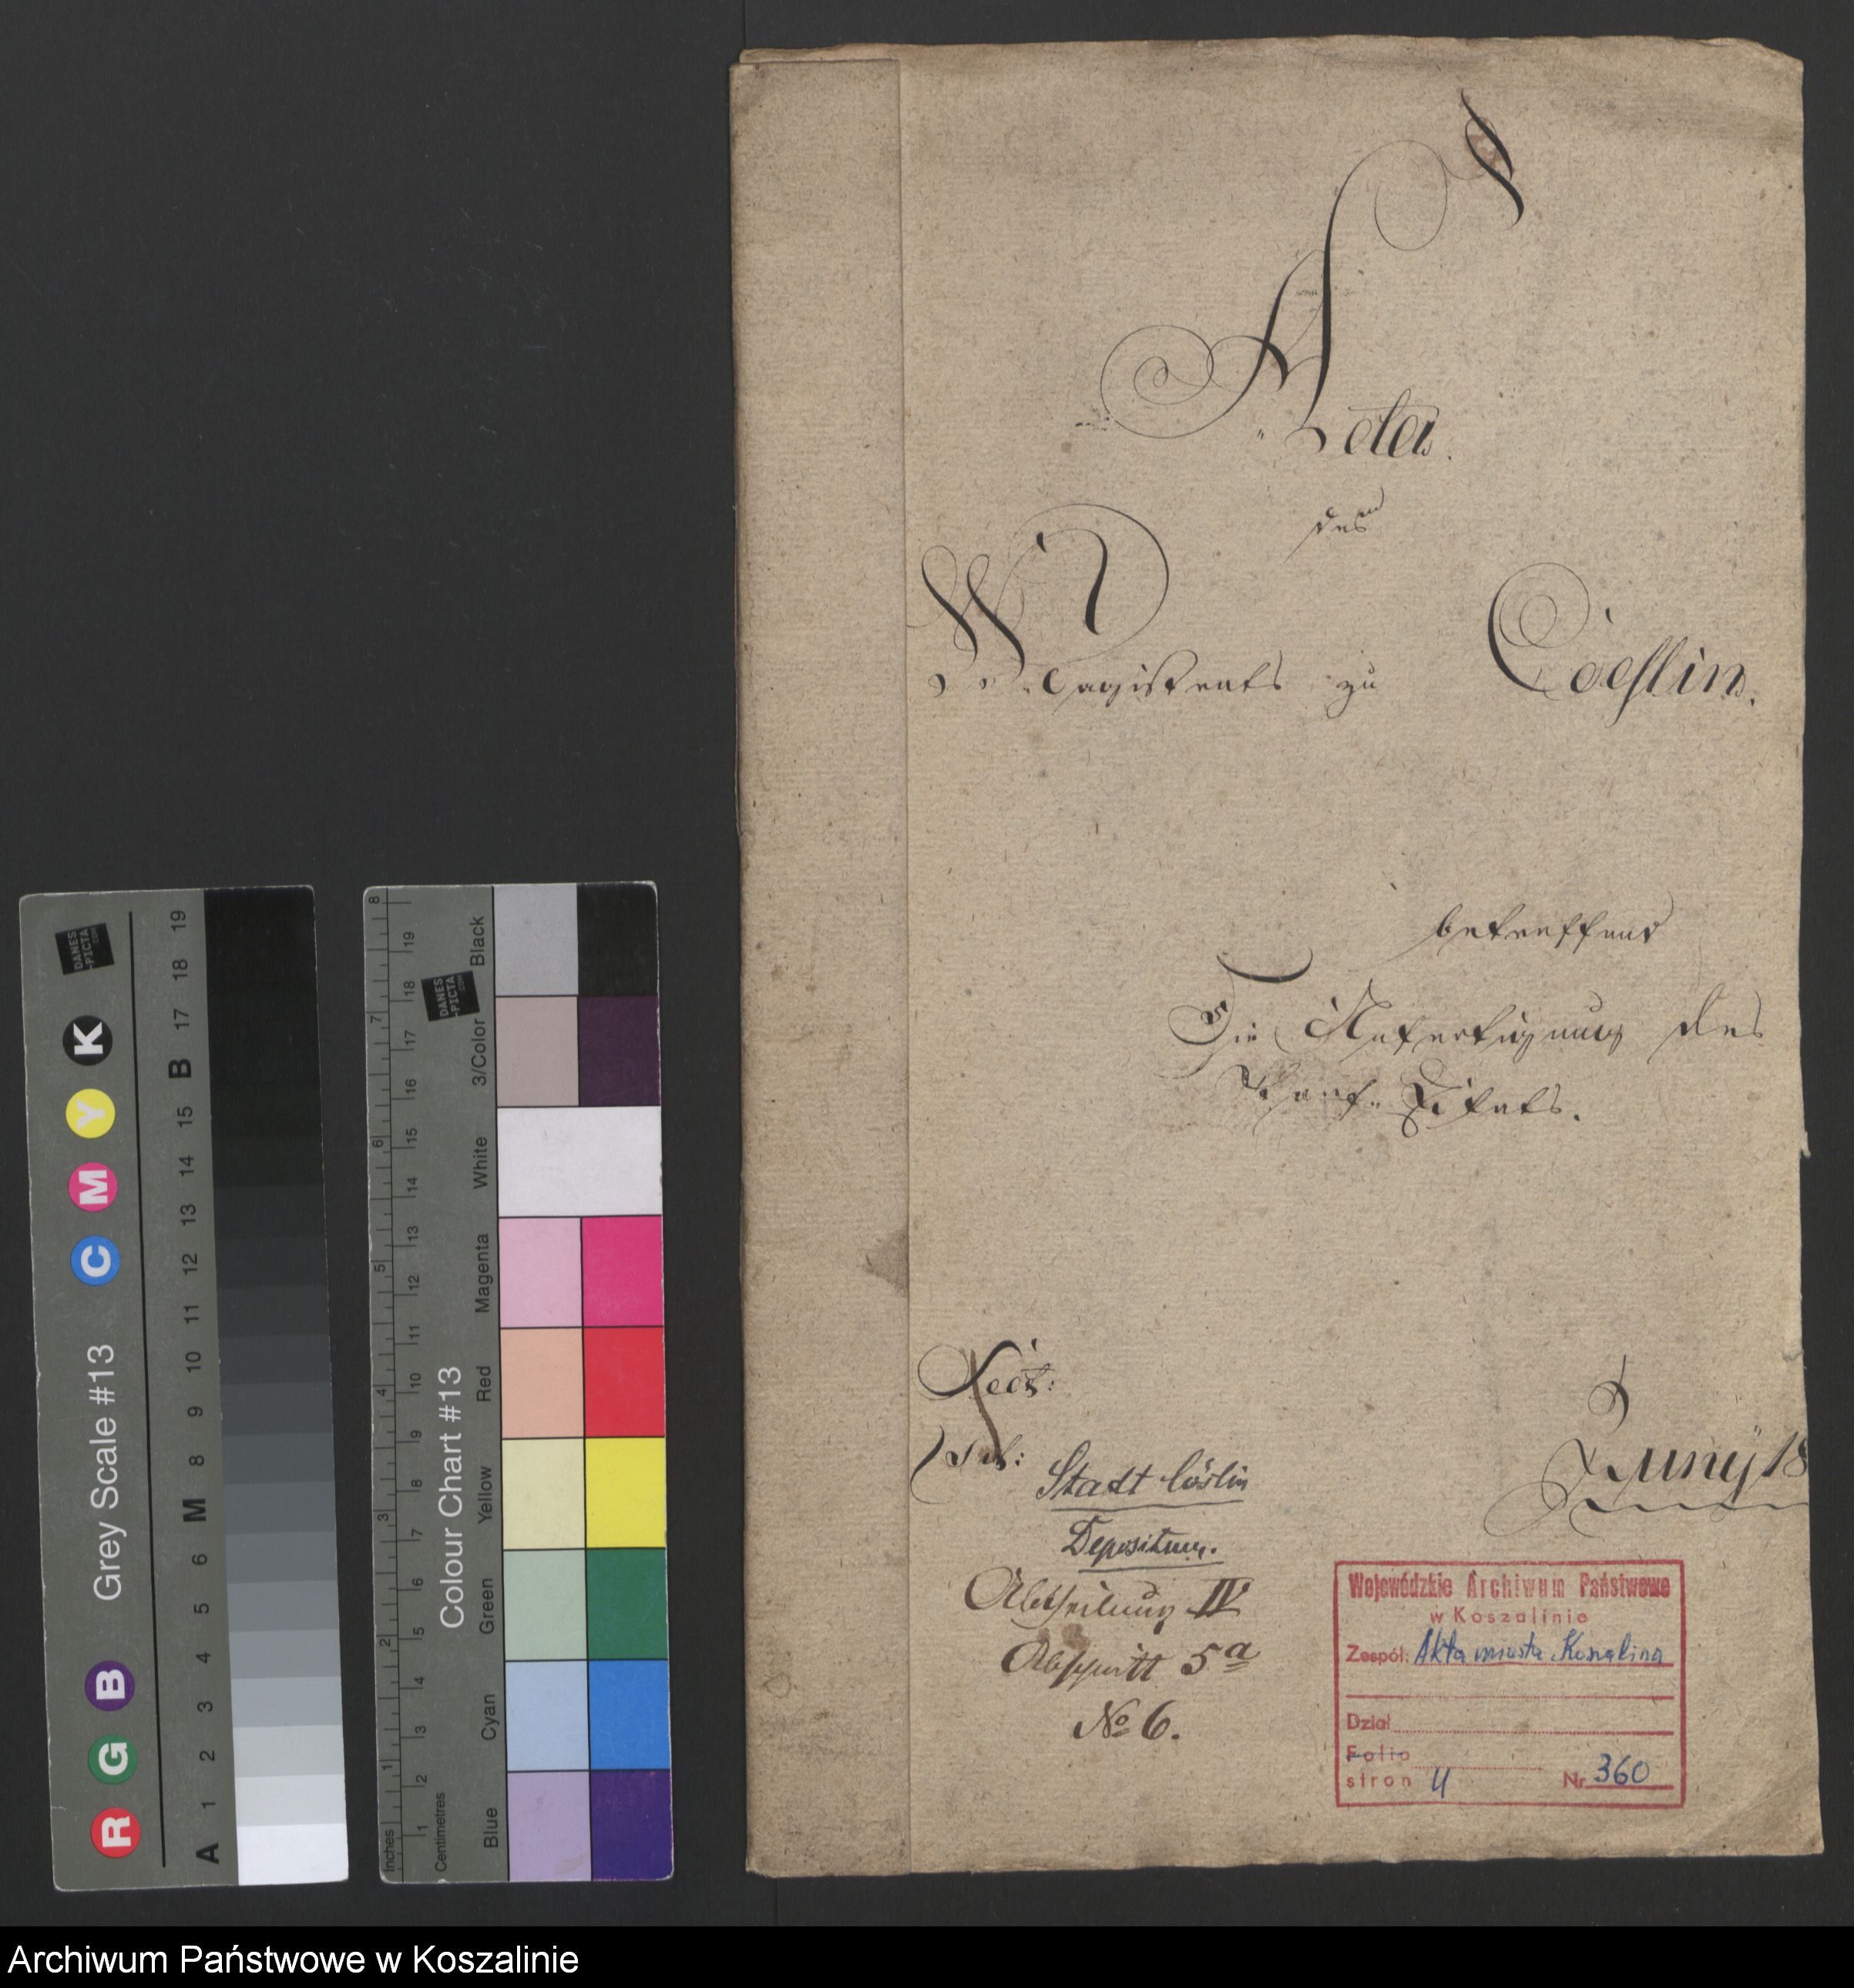 Acta
des
Magistrats zu Coeslin.
betreffend
Die Anfertigung des
Etats.
Sect:
Stadt Cöslin
Depositum.
Abtheilung IV
Abschnitt 5a
No 6.
Juny 18
Wojewódzkie Archiwum Państwowe
w Koszalinie
Zespół: Akta miasta Koszalina
Dział
Folio
stron 4 Nr 360
Grey Scale #13
R G B C M Y K
DANES
-PICTA
.COM
A 1 2 3 4 5 6 M 8 9 10 11 12 13 14 15 B 17 18 19
Colour Chart #13
DANES
-PICTA
.COM
Inches 1 2 3 4 5 6 7 8
Centimetres 1 2 3 4 5 6 7 8 9 10 11 12 13 14 15 16 17 18 19
Blue Cyan Green Yellow Red Magenta White 3/Color Black
Archiwum Państwowe w Koszalinie